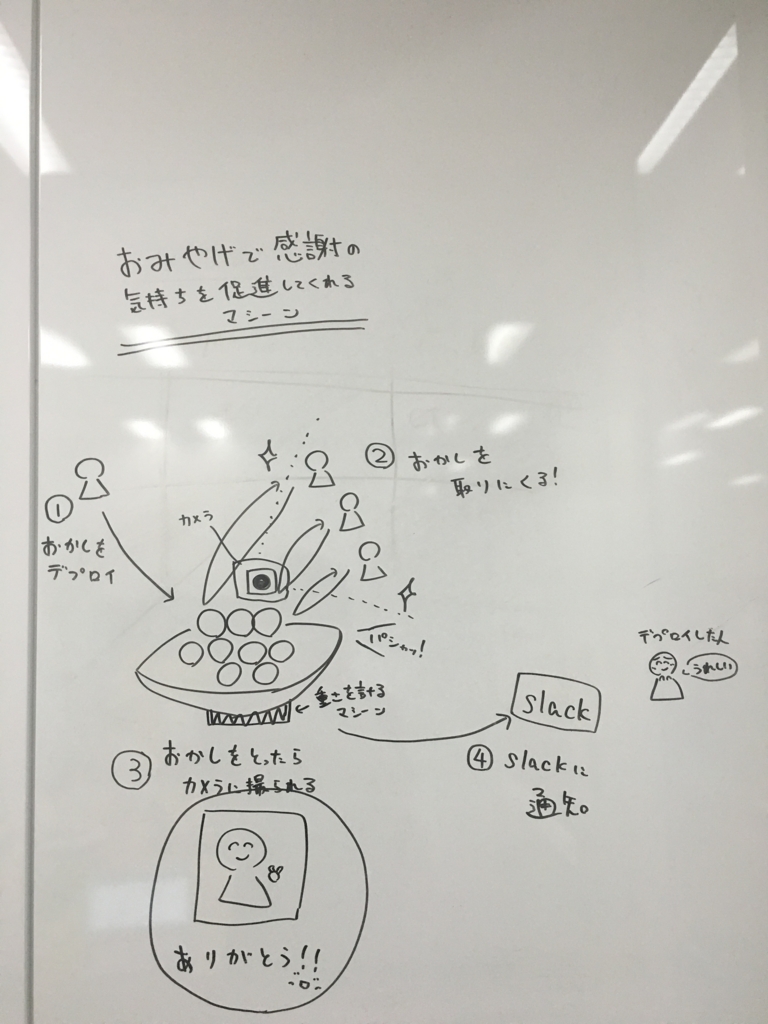 おみやげで感謝の
気持ちを促進してくれる
マシーン
①
おかしを
デプロイ
②
おかしを
取りにくる!
カメラ
パシャッ!
重さを計る
マシーン
③
おかしをとったら
カメラに撮られる
ありがとう!!
slack
④
slackに
通知。
デプロイした人
うれしい